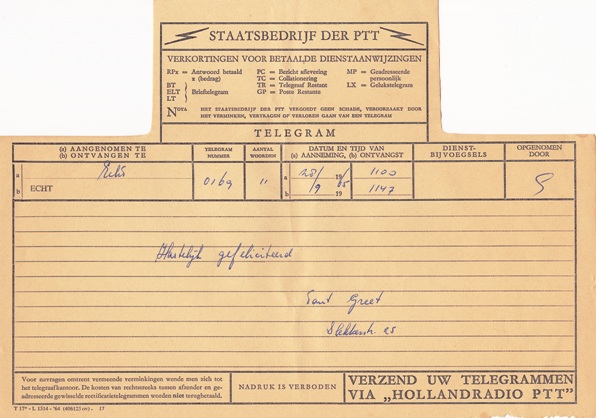 STAATSBEDRIJF DER PTT
VERKORTINGEN VOOR BETAALDE DIENSTAANWIJZINGEN
RPx = Antwoord betaald x (bedrag)
BT
ELT = Brieftelegram
LT
PC = Bericht aflevering
TC = Collationering
TR = Telegraaf Restant
GP = Poste Restante
MP = Geadresseerde persoonlijk
LX = Gelukstelegram
NOTA HET STAATSBEDRIJF DER PTT VERGOEDT GEEN SCHADE, VEROORZAAKT DOOR
HET VERMINKEN, VERTRAGEN OF VERLOREN GAAN VAN EEN TELEGRAM
TELEGRAM
(a) AANGENOMEN TE
(b) ONTVANGEN TE
TELEGRAM NUMMER
AANTAL WOORDEN
DATUM EN TIJD VAN
(a) AANNEMING, (b) ONTVANGST
DIENST-
BIJVOEGSELS
OPGENOMEN
DOOR
a
b ECHT
0169
11
a 28/ 19 1100
b /9 65 19 1147
Hartelijk gefeliciteerd
Tant Greet
25
Voor navragen omtrent vermeende vermiekingen wende men zich tot
het telegraafkantoor. De kosten van rechtstreeks tussen afzender en ge-
adresseerde gewisselde rectificatietelegrammen worden niet terugbetaald.
NADRUK IS VERBODEN
VERZEND UW TELEGRAMMEN
VIA „HOLLANDRADIO PTT”
T 17* - L 1314 - '64 (406125 sv). - 17